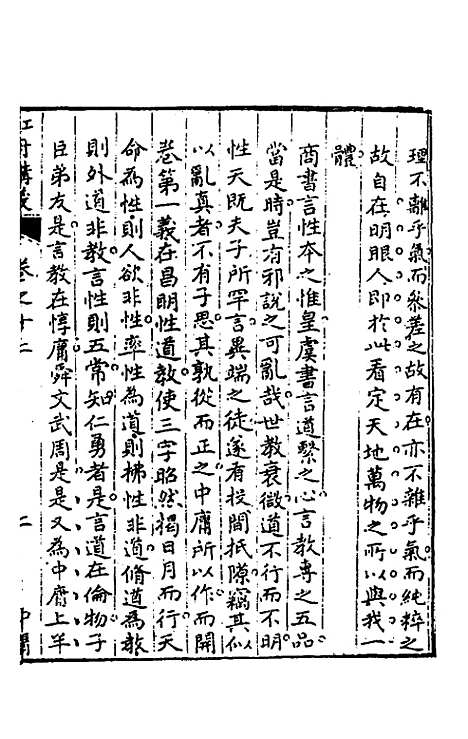 理不離乎氣而參差之故有在亦不雜乎氣而純粹之
故自在明眼人即於此看定天地萬物之所以與我一
體
商書言性本之惟皇虞書言道繫之心言教専之五品
當是時豈有邪說之可亂哉世教衰微道不行而不明
性天既夫子所罕言異端之徒遂有投間抵隙竊其似
以亂真者不有子思其孰從而正之中庸所以作而開
卷第一義在昌明性道教使三字昭然揭日月而行天
命為性則人欲非性率性為道則拂性非道脩道為教
則外道非教言性則五常知仁勇者是言道在倫物子
臣弟友是言教在惇庸舜文武周是是又為中庸上半
講義
卷之十二
二
中庸